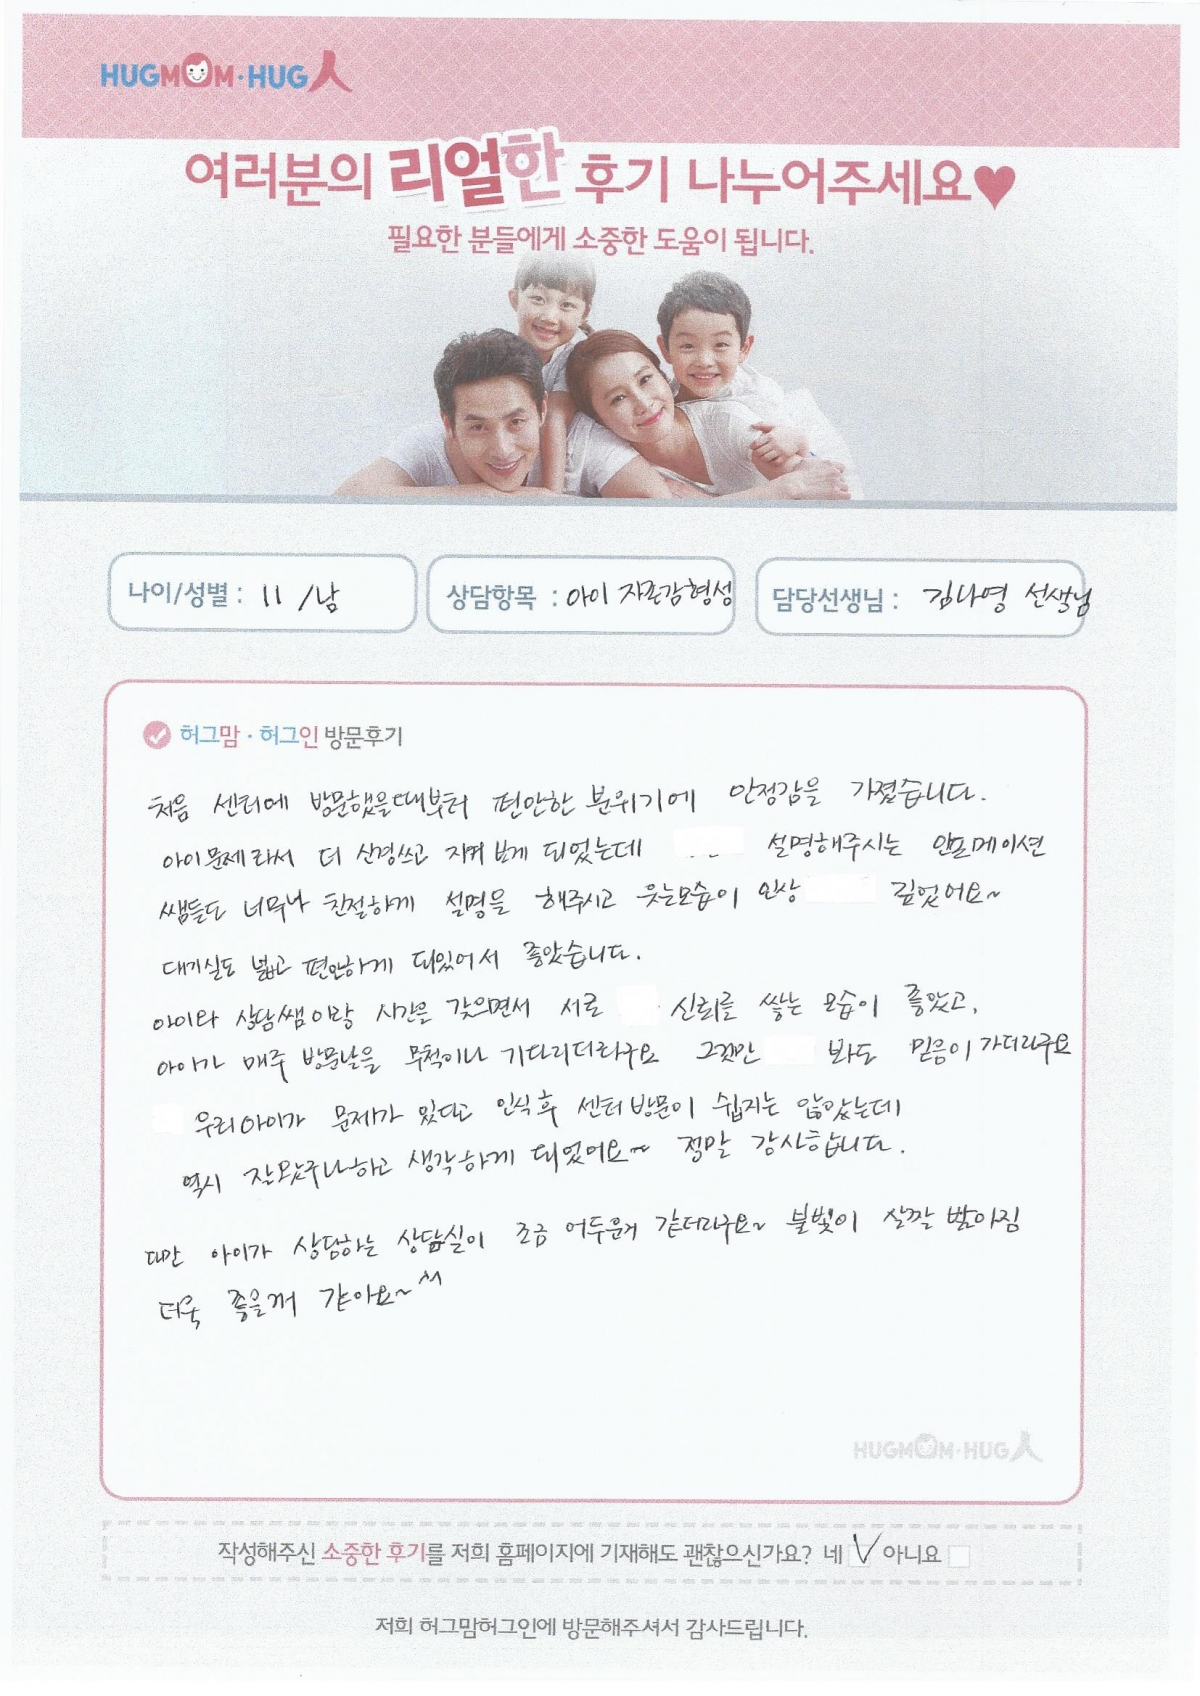 HUGMOM·HUG人
여러분의 리얼한 후기 나누어주세요♥
필요한 분들에게 소중한 도움이 됩니다.
나이/성별 : 11 /남
상담항목 : 아이 자존감형성
담당선생님 : 김나영 선생님
허그맘 · 허그인 방문후기
처음 센터에 방문했을때부터 편안한 분위기에 안정감을 가졌습니다.
아이문제라서 더 신경쓰고 지켜보게 되었는데 설명해주시는 인포메이션
쌤들도 너무나 친절하게 설명을 해주시고 웃는모습이 인상 깊었어요~
대기실도 넓고 편안하게 되있어서 좋았습니다.
아이와 상담쌤이랑 시간을 갖으면서 서로 신뢰를 쌓는 모습이 좋았고,
아이가 매주 방문날을 무척이나 기다리더라구요 그것만 봐도 믿음이 가더라구요
우리아이가 문제가 있다고 인식후 센터방문이 쉽지는 않았는데
역시 잘왔구나하고 생각하게 되었어요~ 정말 감사합니다.
다만 아이가 상담하는 상담실이 조금 어두운거 같더라구요~ 불빛이 살짝 밝아짐
더욱 좋을꺼 같아요~^^
HUGMOM·HUG人
작성해주신 소중한 후기를 저희 홈페이지에 기재해도 괜찮으신가요? 네 ☑ 아니요 ☐
저희 허그맘허그인에 방문해주셔서 감사드립니다.